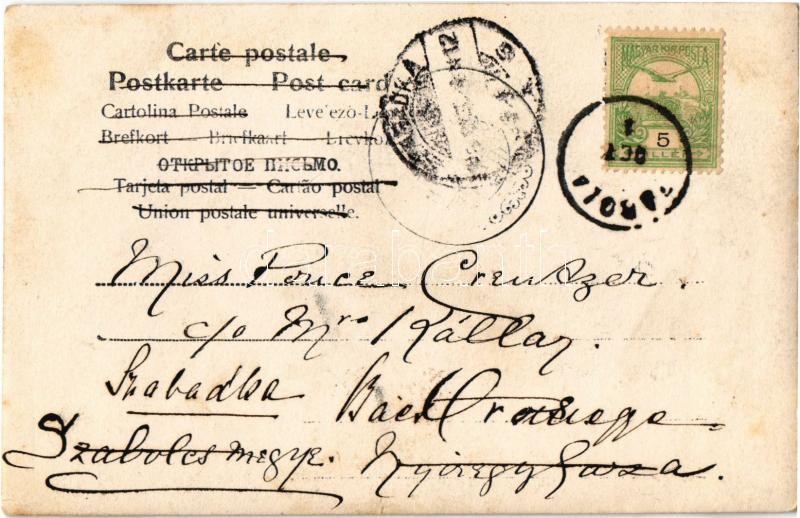 Carte postale.
Postkarte Post card
Cartolina Postale Levelező-L
Brefkort — Briefkaart — Brevkor
ОТКРЫТОЕ ПИСЬМО.
Tarjeta postal — Cartão postal
Union postale universelle.
MAGYAR KIR. POSTA
5
FILLÉR
OCT
1
Miss Ponce Creutzer.
c/o Mrs Kállay.
Szabadka
Szabolcs megye. Nyiregyhaza.